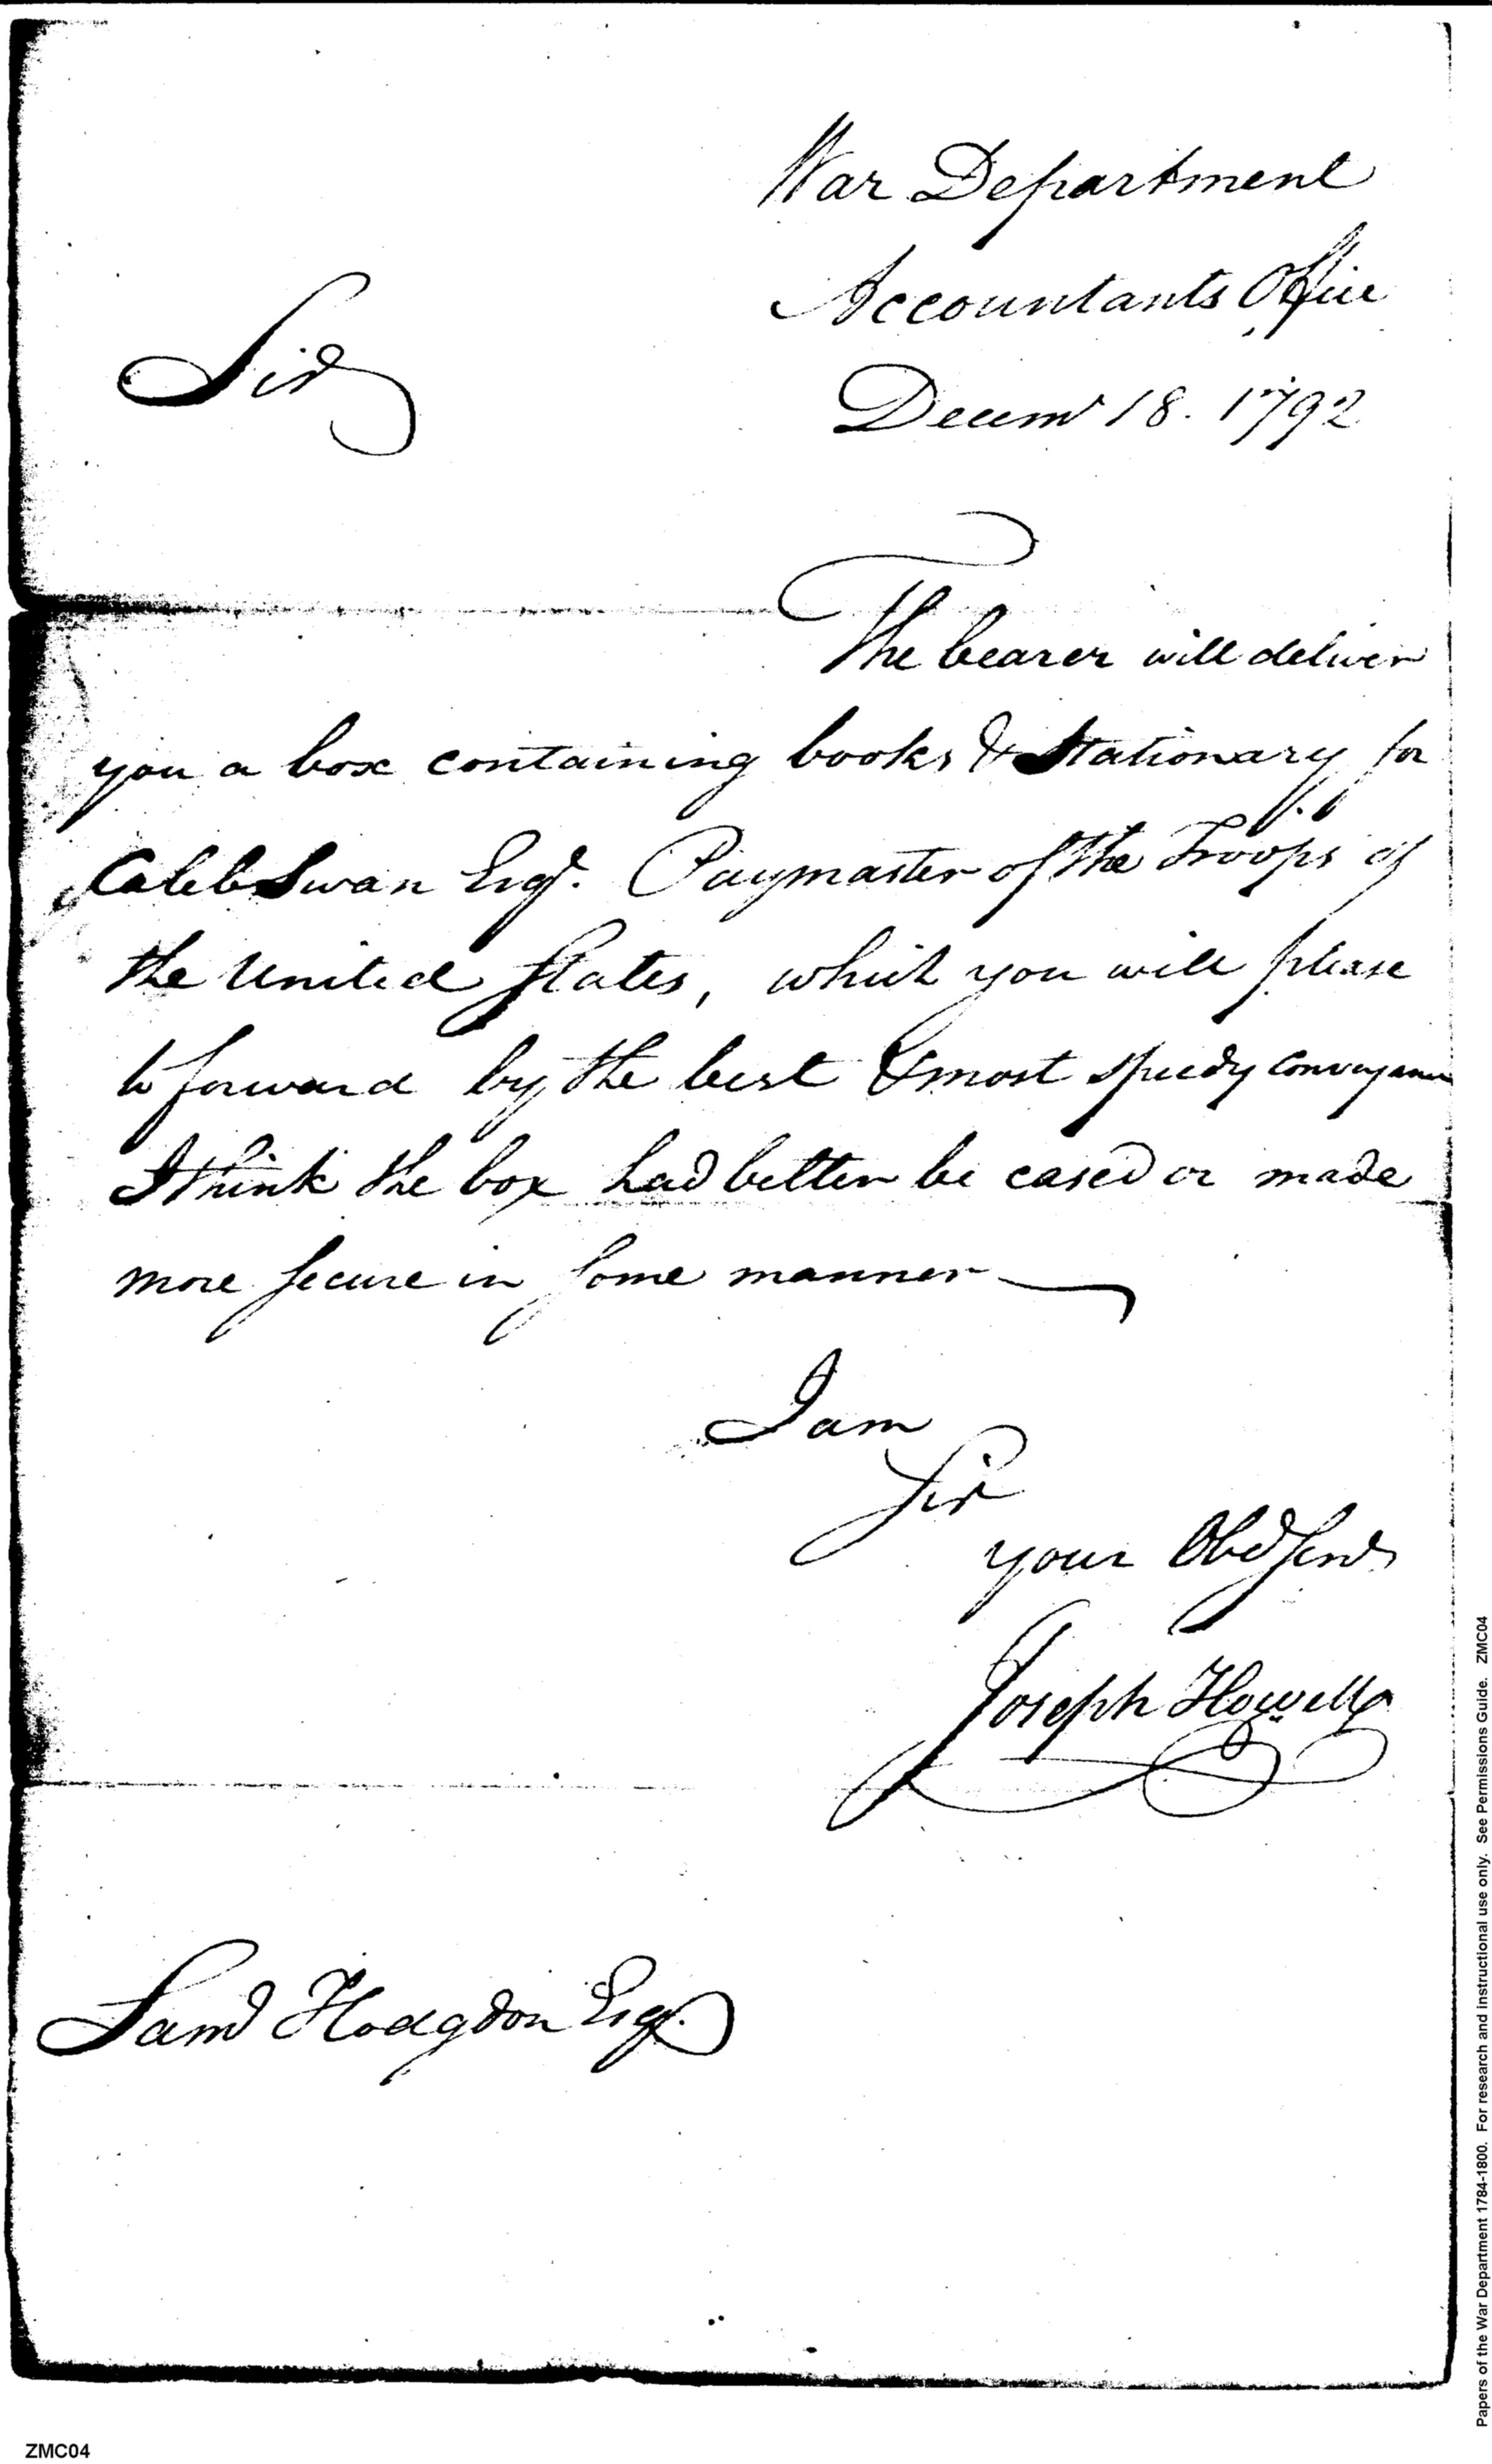 War Department
Accountants Office
Sir
Decemr 18. 1792
The bearer will deliver
you a box containing books & Stationary for
Caleb Swan Esqr. Paymaster of the Troops of
the United States, which you will please
to forward by the best & most speedy conveyance
I think the box had better be cased or made
more secure in some manner
I am
Sir
your Obd Servt
Joseph Howell
Saml Hodgdon Esqr.
Papers of the War Department 1784-1800. For research and instructional use only. See Permissions Guide. ZMC04
ZMC04